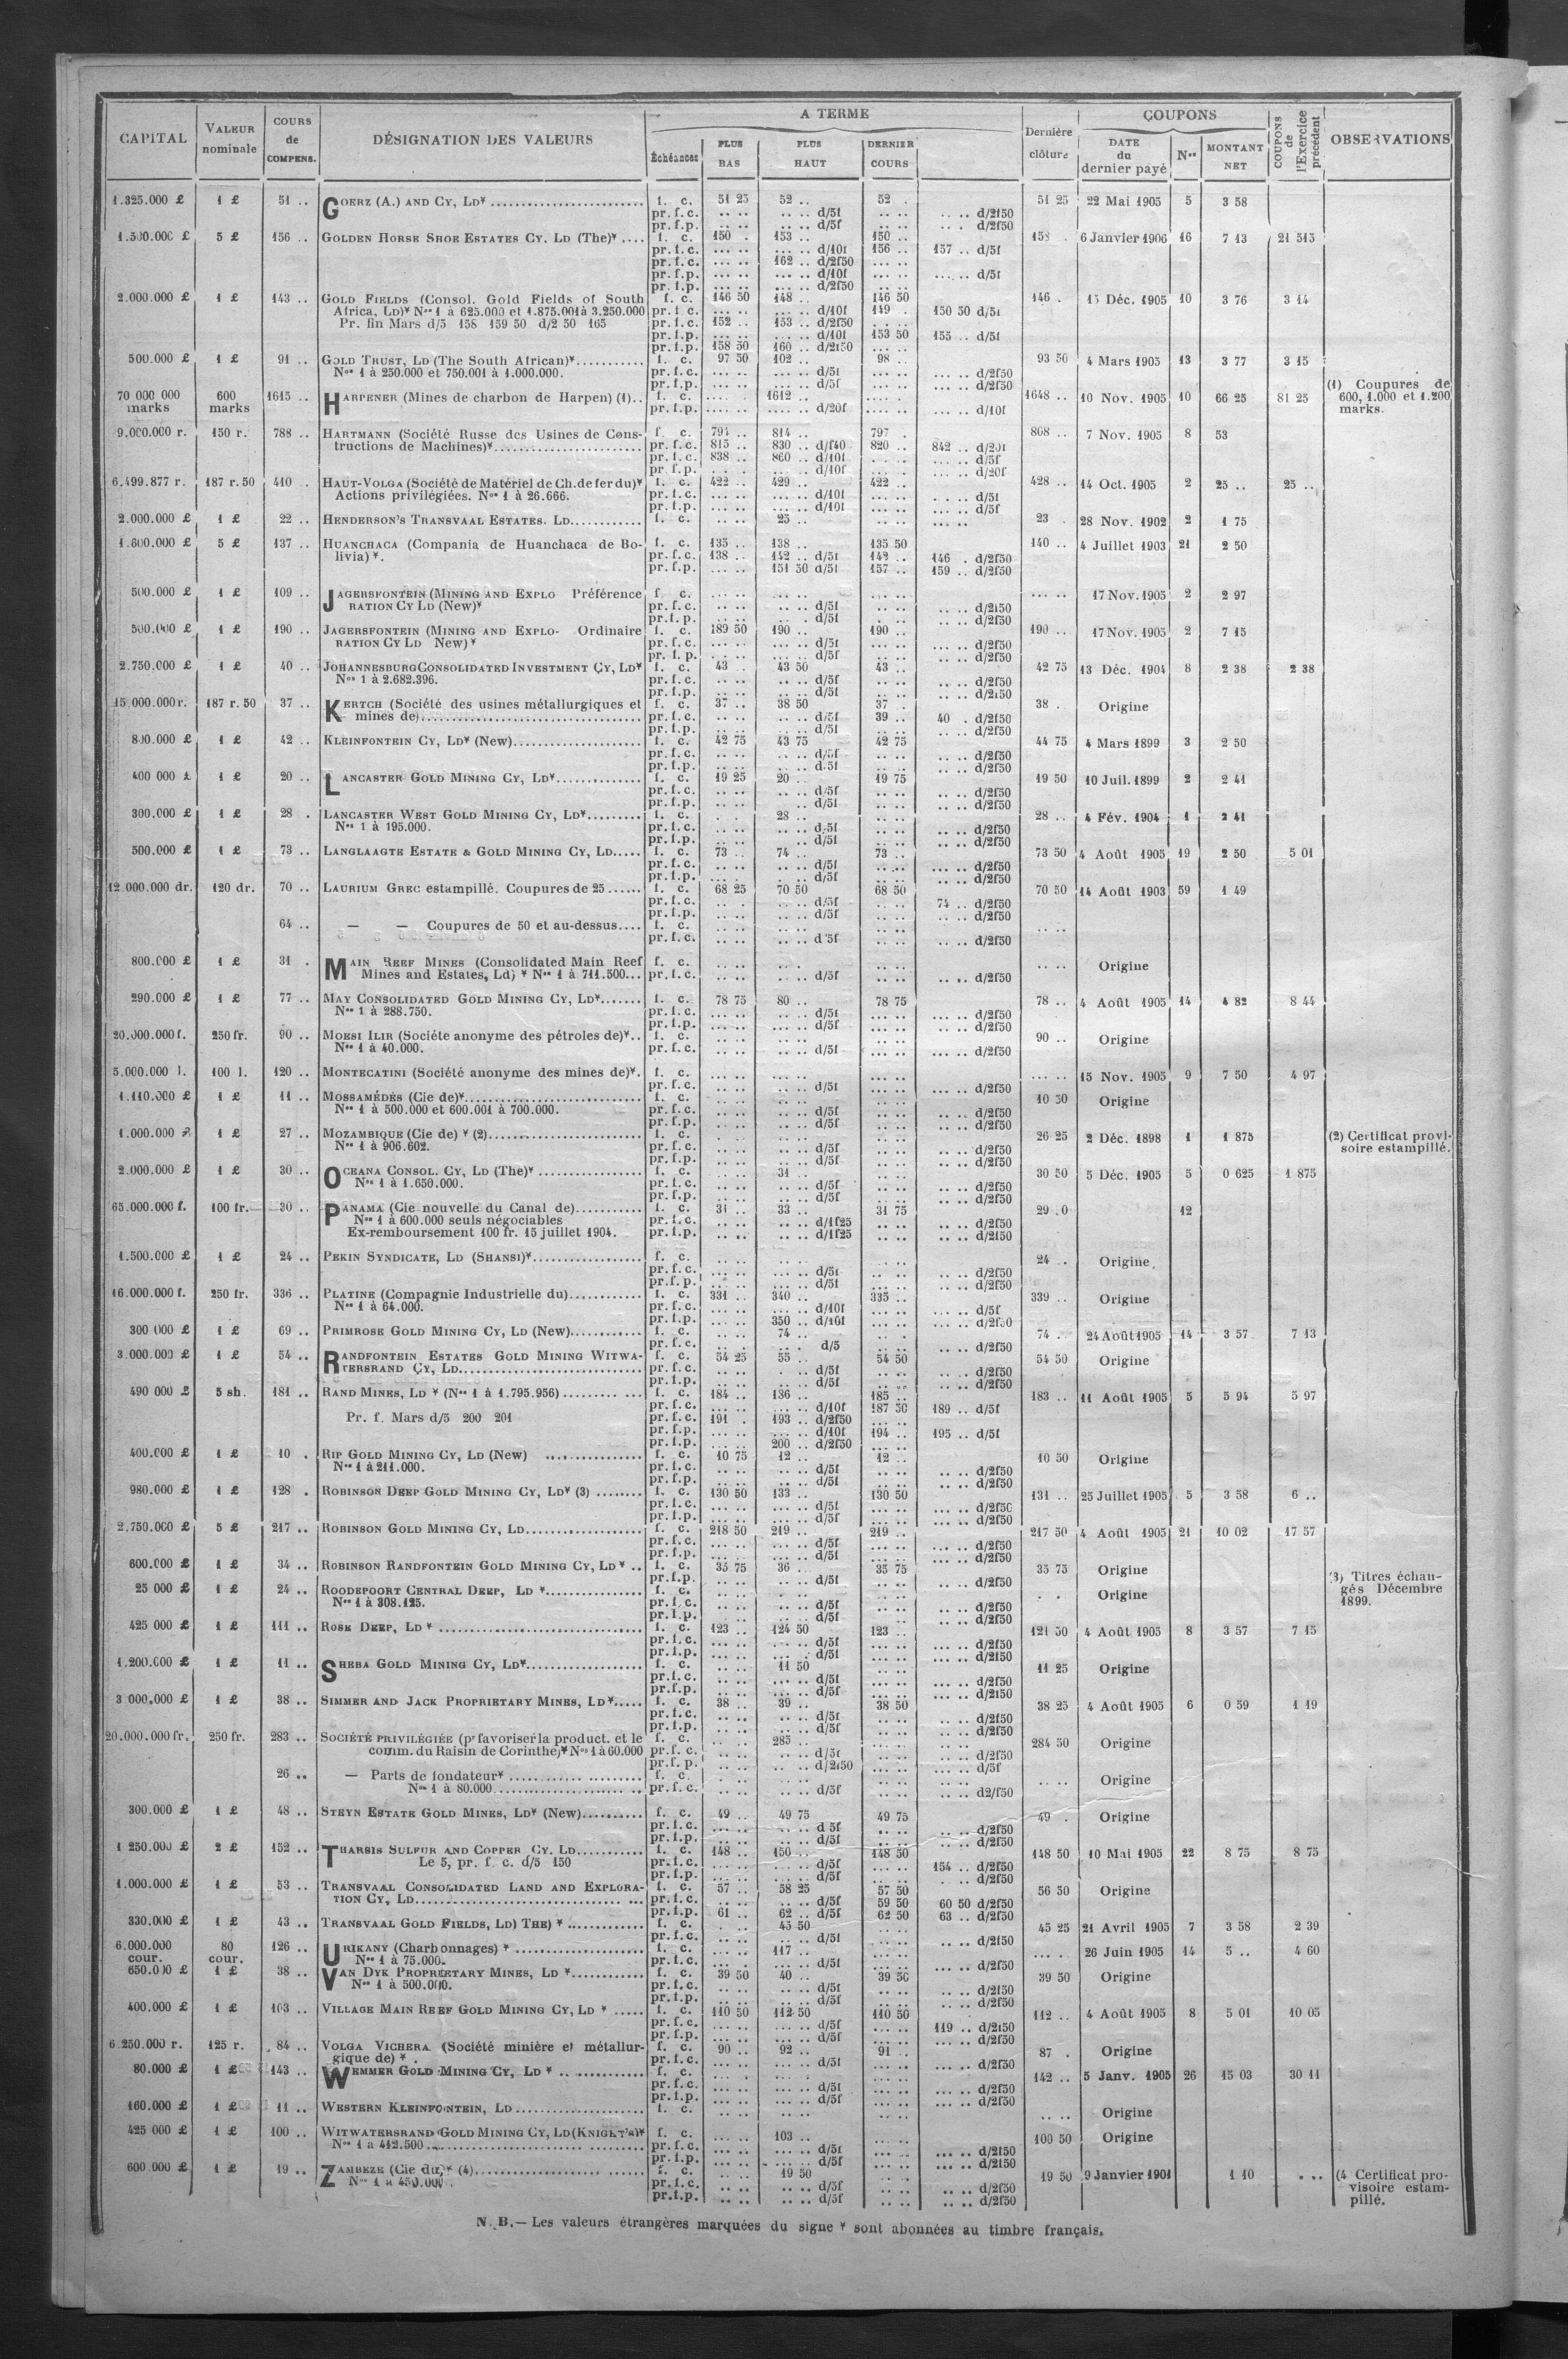 CAPITAL | VALEUR nominale | COURS de COMPENS. | DÉSIGNATION DES VALEURS | A TERME | Dernière clôture | COUPONS | COUPONS de l'Exercice précédent | OBSERVATIONS
Échéances | PLUS BAS | PLUS HAUT | DERNIER COURS | DATE du dernier payé | Nos | MONTANT NET
1.325.000 £ 1 £ 51 .. GOERZ (A.) AND CY, LD* f. c. 51 25 52 .. 52 . 51 25 22 Mai 1905 5 3 58
pr. f. c. .. .. .. .. d/5f .. .. .. .. d/2f50
pr. f. p. .. .. .. .. d/5f .. .. .. . d/2f50
1.500.000 £ 5 £ 156 .. GOLDEN HORSE SHOE ESTATES CY. LD (The)* .... f. c. 150 . 153 .. 150 .. 158 . 6 Janvier 1906 16 7 13 21 513
pr. f. c. ... .. ... .. d/10f 156 .. 157 .. d/5f
pr. f. c. ... .. 162 .. d/2f50 ... ..
pr. f. p. ... .. ... .. d/10f ... .. ... .. d/5f
pr. f. p. ... .. ... .. d/2f50
2.000.000 £ 1 £ 143 .. GOLD FIELDS (Consol. Gold Fields of South f. c. 146 50 148 .. 146 50 146 . 15 Déc. 1905 10 3 76 3 14
Africa, LD)* Nos 1 à 625.000 et 1.875.001 à 3.250.000 pr. f. c. ... .. ... .. d/10f 149 . 150 50 d/5f
Pr. fin Mars d/5 158 159 50 d/2 50 165 pr. f. c. 152 .. 153 .. d/2f50
pr. f. p. ... .. ... .. d/10f 153 50 155 .. d/5f
pr. f. p. 158 50 160 .. d/2f50 ... ..
500.000 £ 1 £ 91 .. GOLD TRUST, LD (The South African)* f. c. 97 50 102 .. 98 .. 93 50 4 Mars 1905 13 3 77 3 15
Nos 1 à 250.000 et 750.001 à 1.000.000. pr. f. c. ... .. ... .. d/5f ... .. ... .. d/2f50
pr. f. p. ... .. ... .. d/5f ... .. ... .. d/2f50
70 000 000 marks 600 marks 1615 .. HARPENER (Mines de charbon de Harpen) (1).. f. c. .... .. 1612 .. 1648 .. 10 Nov. 1905 10 66 25 81 25 (1) Coupures de 600, 1.000 et 1.200 marks.
pr. f. p. .... .. .... .. d/20f .... .. .... .. d/10f
9.000.000 r. 150 r. 788 .. HARTMANN (Société Russe des Usines de Cons- f. c. 794 .. 814 .. 797 . 808 .. 7 Nov. 1905 8 53
tructions de Machines)* pr. f. c. 815 .. 830 .. d/f40 820 .. 842 .. d/20f
pr. f. c. 838 .. 860 .. d/10f ... .. d/5f
pr. f. p. ... .. d/10f ... .. d/20f
6.499.877 r. 187 r. 50 410 .. HAUT-VOLGA (Société de Matériel de Ch. de fer du)* f. c. 422 .. 429 .. 422 .. 428 .. 14 Oct. 1905 2 25 .. 25 ..
Actions privilégiées. Nos 1 à 26.666. pr. f. c. ... .. ... .. d/10f ... .. d/5f
pr. f. p. ... .. ... .. d/10f ... .. d/5f
2.000.000 £ 1 £ 22 .. HENDERSON'S TRANSVAAL ESTATES. LD f. c. .. .. 25 .. 23 . 28 Nov. 1902 2 1 75
1.600.000 £ 5 £ 137 .. HUANCHACA (Compania de Huanchaca de Bo- f. c. 135 .. 138 .. 135 50 140 .. 4 Juillet 1903 21 2 50
livia)*. pr. f. c. 138 .. 142 .. d/5f 143 .. 146 . d/2f50
pr. f. p. ... .. 151 50 d/5f 157 .. 159 .. d/2f50
500.000 £ 1 £ 109 .. JAGERSFONTEIN (MINING AND EXPLO Préférence f. c. 17 Nov. 1905 2 2 97
RATION CY LD (New)* pr. f. c. .. .. .. .. d/5f .. .. .. .. d/2f50
pr. f. p. .. .. .. .. d/5f .. .. .. .. d/2f50
500.000 £ 1 £ 190 .. JAGERSFONTEIN (MINING AND EXPLO- Ordinaire f. c. 189 50 190 .. 190 .. 190 .. 17 Nov. 1905 2 7 15
RATION CY LD New)* pr. f. c. ... .. ... .. d/5f ... .. ... .. d/2f50
pr. f. p. ... .. d/5f ... .. d/2f50
2.750.000 £ 1 £ 40 .. JOHANNESBURG CONSOLIDATED INVESTMENT CY, LD* f. c. 43 .. 43 50 43 .. 42 75 13 Déc. 1904 8 2 38 2 38
Nos 1 à 2.682.396. pr. f. c. .. .. .. .. d/5f .. .. .. .. d/2f50
pr. f. p. .. .. .. .. d/5f .. .. .. .. d/2f50
15.000.000 r. 187 r. 50 37 .. KERTCH (Société des usines métallurgiques et f. c. 37 .. 38 50 37 . 38 . Origine
mines de) pr. f. c. .. .. .. .. d/5f 39 .. 40 . d/2f50
pr. f. p. .. .. .. .. d/5f .. .. .. .. d/2f50
800.000 £ 1 £ 42 .. KLEINFONTEIN CY, LD* (New) f. c. 42 75 43 75 42 75 44 75 4 Mars 1899 3 2 50
pr. f. c. .. .. .. .. d/5f .. .. .. .. d/2f50
pr. f. p. .. .. .. .. d.5f .. .. .. .. d/2f50
400 000 £ 1 £ 20 .. LANCASTER GOLD MINING CY, LD* f. c. 19 25 20 .. 19 75 19 50 10 Juil. 1899 2 2 41
pr. f. c. .. .. .. .. d/5f .. .. .. .. d/2f50
pr. f. p. .. .. .. .. d/5f .. .. .. .. d/2f50
300.000 £ 1 £ 28 . LANCASTER WEST GOLD MINING CY, LD* f. c. . . 28 .. 28 .. 4 Fév. 1904 1 2 41
Nos 1 à 195.000. pr. f. c. .. .. .. .. d.5f .. .. .. .. d/2f50
pr. f. p. .. .. .. .. d/5f .. .. .. .. d/2f50
500.000 £ 1 £ 73 .. LANGLAAGTE ESTATE & GOLD MINING CY, LD f. c. 73 .. 74 .. 73 .. 73 50 4 Août 1905 19 2 50 5 01
pr. f. c. .. .. .. .. d/5f .. .. ... .. d/2f50
pr. f. p. .. .. d/5f .. .. .. .. d/2f50
12.000.000 dr. 120 dr. 70 .. LAURIUM GREC estampillé. Coupures de 25 f. c. 68 25 70 50 68 50 70 50 14 Août 1903 59 1 49
pr. f. c. .. . .. .. d/5f .. .. 74 .. d/2f50
pr. f. p. .. .. .. .. d/5f .. .. .. .. d/2f50
64 .. — — Coupures de 50 et au-dessus.... f. c.
pr. f. c. .. .. .. .. d 5f .. .. .. .. d/2f50
800.000 £ 1 £ 31 . MAIN REEF MINES (Consolidated Main Reef f. c. .. .. Origine
Mines and Estates, Ld)* Nos 1 à 711.500... pr. f. c. .. .. .. .. d/5f .. .. .. .. d/2f50
290.000 £ 1 £ 77 .. MAY CONSOLIDATED GOLD MINING CY, LD* f. c. 78 75 80 .. 78 75 78 .. 4 Août 1905 14 4 82 8 44
Nos 1 à 288.750. pr. f. c. .. .. .. .. d/5f .. .. .. .. d/2f50
pr. f. p. .. .. .. .. d/5f .. .. .. .. d/2f50
20.000.000 f. 250 fr. 90 .. MOESI ILIR (Sociéte anonyme des pétroles de)*.. f. c. 90 .. Origine
Nos 1 à 40.000. pr. f. c. .. .. .. .. d/5f ... .. ... .. d/2f50
5.000.000 l. 100 l. 120 .. MONTECATINI (Société anonyme des mines de)*. f. c. 15 Nov. 1905 9 7 50 4 97
pr. f. c. ... .. ... .. d/5f ... .. ... .. d/2f50
1.110.000 £ 1 £ 11 .. MOSSAMÉDÈS (Cie de)* f. c. 10 50 Origine
Nos 1 à 500.000 et 600.001 à 700.000. pr. f. c. .. .. .. .. d/5f .. .. .. .. d/2f50
pr. f. p. .. .. .. .. d/5f .. .. .. .. d/2f50
1.000.000 £ 1 £ 27 .. MOZAMBIQUE (Cie de) * (2) f. c. 26 25 2 Déc. 1898 1 1 875 (2) Certificat provi-
Nos 1 à 906.602. pr. f. c. .. .. .. .. d/5f .. .. .. .. d/2f50 soire estampillé.
pr. f. p. .. .. .. .. d/5f .. .. .. .. d/2f50
2.000.000 £ 1 £ 30 .. OCEANA CONSOL. CY, LD (The)* f. c. .. .. 31 .. 30 50 5 Déc. 1905 5 0 625 1 875
Nos 1 à 1.650.000. pr. f. c. .. .. .. .. d/5f .. .. .. .. d/2f50
pr. f. p. .. .. .. .. d/5f .. .. .. .. d/2f50
65.000.000 f. 100 fr. 30 .. PANAMA (Cie nouvelle du Canal de) f. c. 31 .. 33 .. 31 75 12
Nos 1 à 600.000 seuls négociables pr. f. c. .. .. .. .. d/1f25 .. .. .. .. d/2f50
Ex-remboursement 100 fr. 15 juillet 1904. pr. f. p. .. .. .. .. d/1f25 .. .. .. .. d/2f50
1.500.000 £ 1 £ 24 .. PEKIN SYNDICATE, LD (SHANSI)* f. c. 24 .. Origine
pr. f. c. .. .. .. .. d/5f .. .. .. .. d/2f50
pr. f. p. .. .. .. .. d/5f .. .. .. .. d/2f50
16.000.000 f. 250 fr. 336 .. PLATINE (Compagnie Industrielle du) f. c. 331 .. 340 .. 335 .. 339 .. Origine
Nos 1 à 64.000. pr. f. c. ... .. ... .. d/10f ... .. ... .. d/5f
pr. f. p. ... .. 350 .. d/10f ... .. ... .. d/2f50
300 000 £ 1 £ 69 .. PRIMROSE GOLD MINING CY, LD (New) f. c. .. .. 74 .. 74 .. 24 Août 1905 14 3 57 7 13
pr. f. c. .. .. d/5 .. .. .. .. d/2f50
3.000.000 £ 1 £ 54 .. RANDFONTEIN ESTATES GOLD MINING WITWA- f. c. 54 25 55 .. 54 50 54 50 Origine
TERSRAND CY, LD pr. f. c. .. .. .. .. d/5f .. .. .. .. d/2f50
pr. f. p. .. .. .. .. d/5f .. .. .. .. d/2f50
490 000 £ 5 sh. 181 .. RAND MINES, LD * (Nos 1 à 1.795.956) f. c. 184 .. 186 .. 185 .. 183 .. 11 Août 1905 5 5 94 5 97
pr. f. c. ... .. ... .. d/10f 187 50 189 .. d/5f
Pr. f. Mars d/5 200 201 pr. f. c. 191 . 193 .. d/2f50 ... ..
pr. f. p. ... .. ... .. d/10f 194 .. 195 .. d/5f
pr. f. p. ... .. 200 .. d/2f50 ... ..
400.000 £ 1 £ 10 . RIP GOLD MINING CY, LD (New) f. c. 10 75 12 .. 12 .. 10 50 Origine
Nos 1 à 211.000. pr. f. c. .. .. .. .. d/5f .. .. .. .. d/2f50
pr. f. p. .. .. .. .. d/5f .. .. .. .. d/2f50
980.000 £ 1 £ 128 . ROBINSON DEEP GOLD MINING CY, LD* (3) f. c. 130 50 133 .. 130 50 131 .. 25 Juillet 1905 5 3 58 6 ..
pr. f. c. ... .. ... .. d/5f ... .. ... .. d/2f50
pr. f. p. ... .. ... .. d/5f ... .. ... .. d/2f50
2.750.000 £ 5 £ 217 .. ROBINSON GOLD MINING CY, LD f. c. 218 50 219 .. 219 .. 217 50 4 Août 1905 21 10 02 17 57
pr. f. c. ... .. ... .. d/5f ... .. ... .. d/2f50
pr. f. p. ... .. ... .. d/5f ... .. ... .. d/2f50
600.000 £ 1 £ 34 .. ROBINSON RANDFONTEIN GOLD MINING CY, LD * .. f. c. 35 75 36 .. 35 75 35 75 Origine
pr. f. p. .. .. .. .. d/5f .. .. .. .. d/2f50 (3) Titres échan-
25 000 £ 1 £ 24 .. ROODEPOORT CENTRAL DEEP, LD * f. c. . . Origine gés Décembre
Nos 1 à 308.125. pr. f. c. .. .. .. .. d/5f .. .. .. .. d/2f50 1899.
pr. f. p. .. .. .. .. d/5f .. .. .. .. d/2f50
425 000 £ 1 £ 111 .. ROSE DEEP, LD * f. c. 123 .. 124 50 123 .. 121 50 4 Août 1905 8 3 57 7 15
pr. f. c. ... .. ... .. d/5f ... .. ... .. d/2f50
pr. f. p. ... .. ... .. d/5f ... .. ... .. d/2f50
1.200.000 £ 1 £ 11 .. SHEBA GOLD MINING CY, LD* f. c. .. .. 11 50 11 25 Origine
pr. f. c. .. .. .. .. d/5f .. .. .. .. d/2f50
pr. f. p. .. .. .. .. d/5f .. .. .. .. d/2f50
3 000.000 £ 1 £ 38 .. SIMMER AND JACK PROPRIETARY MINES, LD* f. c. 38 .. 39 .. 38 50 38 25 4 Août 1905 6 0 59 1 19
pr. f. c. .. .. .. .. d/5f .. .. .. .. d/2f50
pr. f. p. .. .. .. .. d/5f .. .. .. .. d/2f50
20.000.000 fr. 250 fr. 283 .. SOCIÉTÉ PRIVILÉGIÉE (pr favoriser la product. et le f. c. .. . 285 .. 284 50 Origine
comm. du Raisin de Corinthe)* Nos 1 à 60.000 pr. f. c. .. .. .. .. d/5f .. .. .. .. d/2f50
pr. f. p. .. .. .. .. d/2f50 .. .. .. .. d/5f
26 .. — Parts de fondateur* f. c. .. .. Origine
Nos 1 à 80.000 pr. f. c. .. .. .. .. d/5f .. .. .. .. d2/f50
300.000 £ 1 £ 48 .. STEYN ESTATE GOLD MINES, LD* (New) f. c. 49 .. 49 75 49 75 49 . Origine
pr. f. c. ... .. .. .. d 5f .. .. .. .. d/2f50
pr. f. p. .. .. .. .. d/5f .. .. .. .. d/2f50
1 250.000 £ 2 £ 152 .. THARSIS SULFUR AND COPPER CY. LD f. c. 148 .. 150 .. 148 50 148 50 10 Mai 1905 22 8 75 8 75
Le 5, pr. f. c. d/5 150 pr. f. c. ... .. ... .. d/5f ... .. 154 .. d/2f50
pr. f. p. ... .. ... .. d/5f ... .. d/2f50
1.000.000 £ 1 £ 53 .. TRANSVAAL CONSOLIDATED LAND AND EXPLORA- f. c. 57 .. 58 25 57 50 56 50 Origine
TION CY, LD pr. f. c. .. .. .. .. d/5f 59 50 60 50 d/2f50
pr. f. p. 61 .. 62 .. d/5f 62 50 63 .. d/2f50
330.000 £ 1 £ 43 .. TRANSVAAL GOLD FIELDS, LD) THE) * f. c. . . 45 50 45 25 21 Avril 1905 7 3 58 2 39
pr. f. c. .. .. .. .. d/5f .. .. .. .. d/2f50
6.000.000 cour. 80 cour. 126 .. URIKANY (Charbonnages) * f. c. ... .. 117 .. 26 Juin 1905 14 5 .. 4 60
Nos 1 à 75.000. pr. f. c. ... .. ... .. d/5f ... .. ... .. d/2f50
650.000 £ 1 £ 38 .. VAN DYK PROPRIETARY MINES, LD * f. c. 39 50 40 .. 39 50 39 50 Origine
Nos 1 à 500.000. pr. f. c. .. .. .. .. d/5f .. .. .. .. d/2f50
pr. f. p. .. .. .. .. d/5f .. .. .. .. d/2f50
400.000 £ 1 £ 103 .. VILLAGE MAIN REEF GOLD MINING CY, LD * f. c. 110 50 112 50 110 50 112 .. 4 Août 1905 8 5 01 10 05
pr. f. c. ... .. ... .. d/5f ... .. 119 .. d/2f50
pr. f. p. ... .. ... .. d/5f ... .. ... .. d/2f50
6.250.000 r. 125 r. 84 .. VOLGA VICHERA (Société minière et métallur- f. c. 90 .. 92 .. 91 .. 87 . Origine
gique de) * . pr. f. c. ... .. ... .. d/5f ... .. ... .. d/2f50
80.000 £ 1 £ 143 .. WEMMER GOLD MINING CY, LD * f. c. 142 .. 5 Janv. 1905 26 15 03 30 11
pr. f. c. ... .. ... .. d/5f ... .. ... .. d/2f50
pr. f. p. ... .. ... .. d/5f ... .. ... .. d/2f50
160.000 £ 1 £ 11 .. WESTERN KLEINFONTEIN, LD f. c. .. .. Origine
425 000 £ 1 £ 100 .. WITWATERSRAND GOLD MINING CY, LD (KNIGHT'S)* f. c. ... .. 103 .. 100 50 Origine
Nos 1 à 412.500 pr. f. c. ... .. ... .. d/5f ... .. ... .. d/2f50
pr. f. p. ... .. ... .. d/5f ... .. ... .. d/2f50
600.000 £ 1 £ 19 .. ZAMBEZE (Cie du)* (4) f. c. .. .. 19 50 19 50 9 Janvier 1901 1 10 . .. (4 Certificat pro-
Nos 1 à 450.000. pr. f. c. .. .. .. .. d/5f .. .. .. .. d/2f50 visoire estam-
pr. f. p. .. .. .. .. d/5f .. .. .. .. d/2f50 pillé.
N. B.— Les valeurs étrangères marquées du signe * sont abonnées au timbre français.